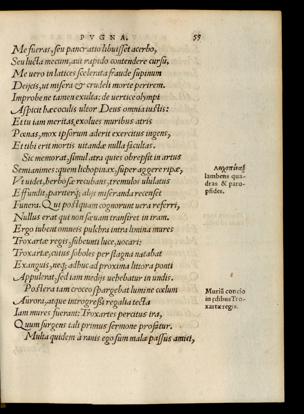 PVGNA. 55
Me fueras, seu pancratio libuisset acerbo,
Seu lucta mecum, aut rapido contendere cursu,
Me uero in latices scelerata fraude supinum
Deijcis, ut misera & crudeli morte perirem.
Improbe ne tamen exulta: de uertice olympi
Aspicit hæc oculis ultor Deus omnia iustis:
Et tu iam meritas exolues muribus atris
Pœnas, mox ipsorum aderit exercitus ingens,
Et tibi erit mortis uitandæ nulla facultas.
Sic memorat, simul atra quies obrepsit in artus
Semianimes: quem lichopinax, super aggere ripæ,
Vt uidet, herbosæ recubans, tremulos ululatus
Effundit, pariterq; alijs miseranda recenset
Funera. Qui postquam cognorunt uera referri,
Nullus erat qui non sæuam transiret in iram.
Ergo iubent omneis pulchra intra limina mures
Troxartæ regis, subeunti luce, uocari:
Troxartæ, cuius soboles per stagna natabat
Exanguis, neq; adhuc ad proxima littora ponti
Appulerat, sed iam medijs uehebatur in undis.
Postera iam croceo spargebat lumine cœlum
Aurora, atque introgressi regalia tecta
Iam mures fuerant: Troxartes percitus ira,
Quum surgens tali primus sermone profatur.
Multa quidem à ranis ego sum mala passus amici,
lambens qua-
dras & paro-
psides.
Muriū concio
in ędibus Tro-
xartæ regis.